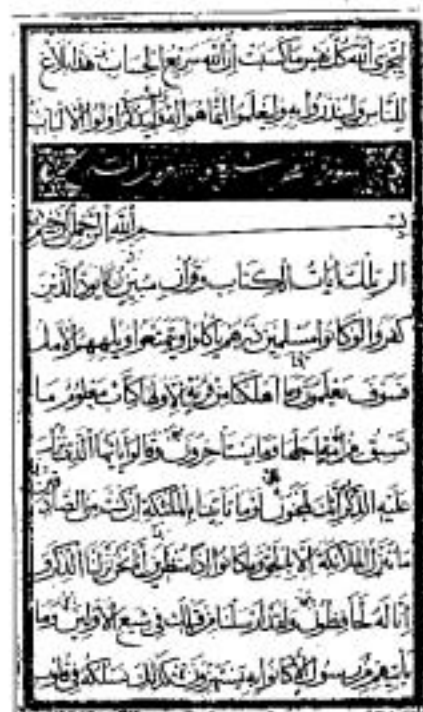 ليجزي الله كل نفس ما كسبت إن الله سريع الحساب هذا بلاغ
للناس ولينذروا به وليعلموا أنما هو إله وليذكر أولوا الألباب
سورة تسع وتسعون
بسم الله الرحمن الرحيم
الر تلك آيات الكتاب وقرآن مبين ربما يود الذين
كفروا لو كانوا مسلمين ذرهم يأكلوا ويتمتعوا ويلههم الأمل
فسوف يعلمون وما أهلكنا من قرية إلا ولها كتاب معلوم ما
تسبق من أمة أجلها وما يستأخرون وقالوا يا أيها الذي نزل
عليه الذكر إنك لمجنون لو ما تأتينا بالملائكة إن كنت من الصادقين
ما ننزل الملائكة إلا بالحق وما كانوا إذا منظرين إنا نحن نزلنا الذكر و
إنا له لحافظون ولقد أرسلنا من قبلك في شيع الأولين وما
يأتيهم من رسول إلا كانوا به يستهزءون كذلك نسلكه في قلوب